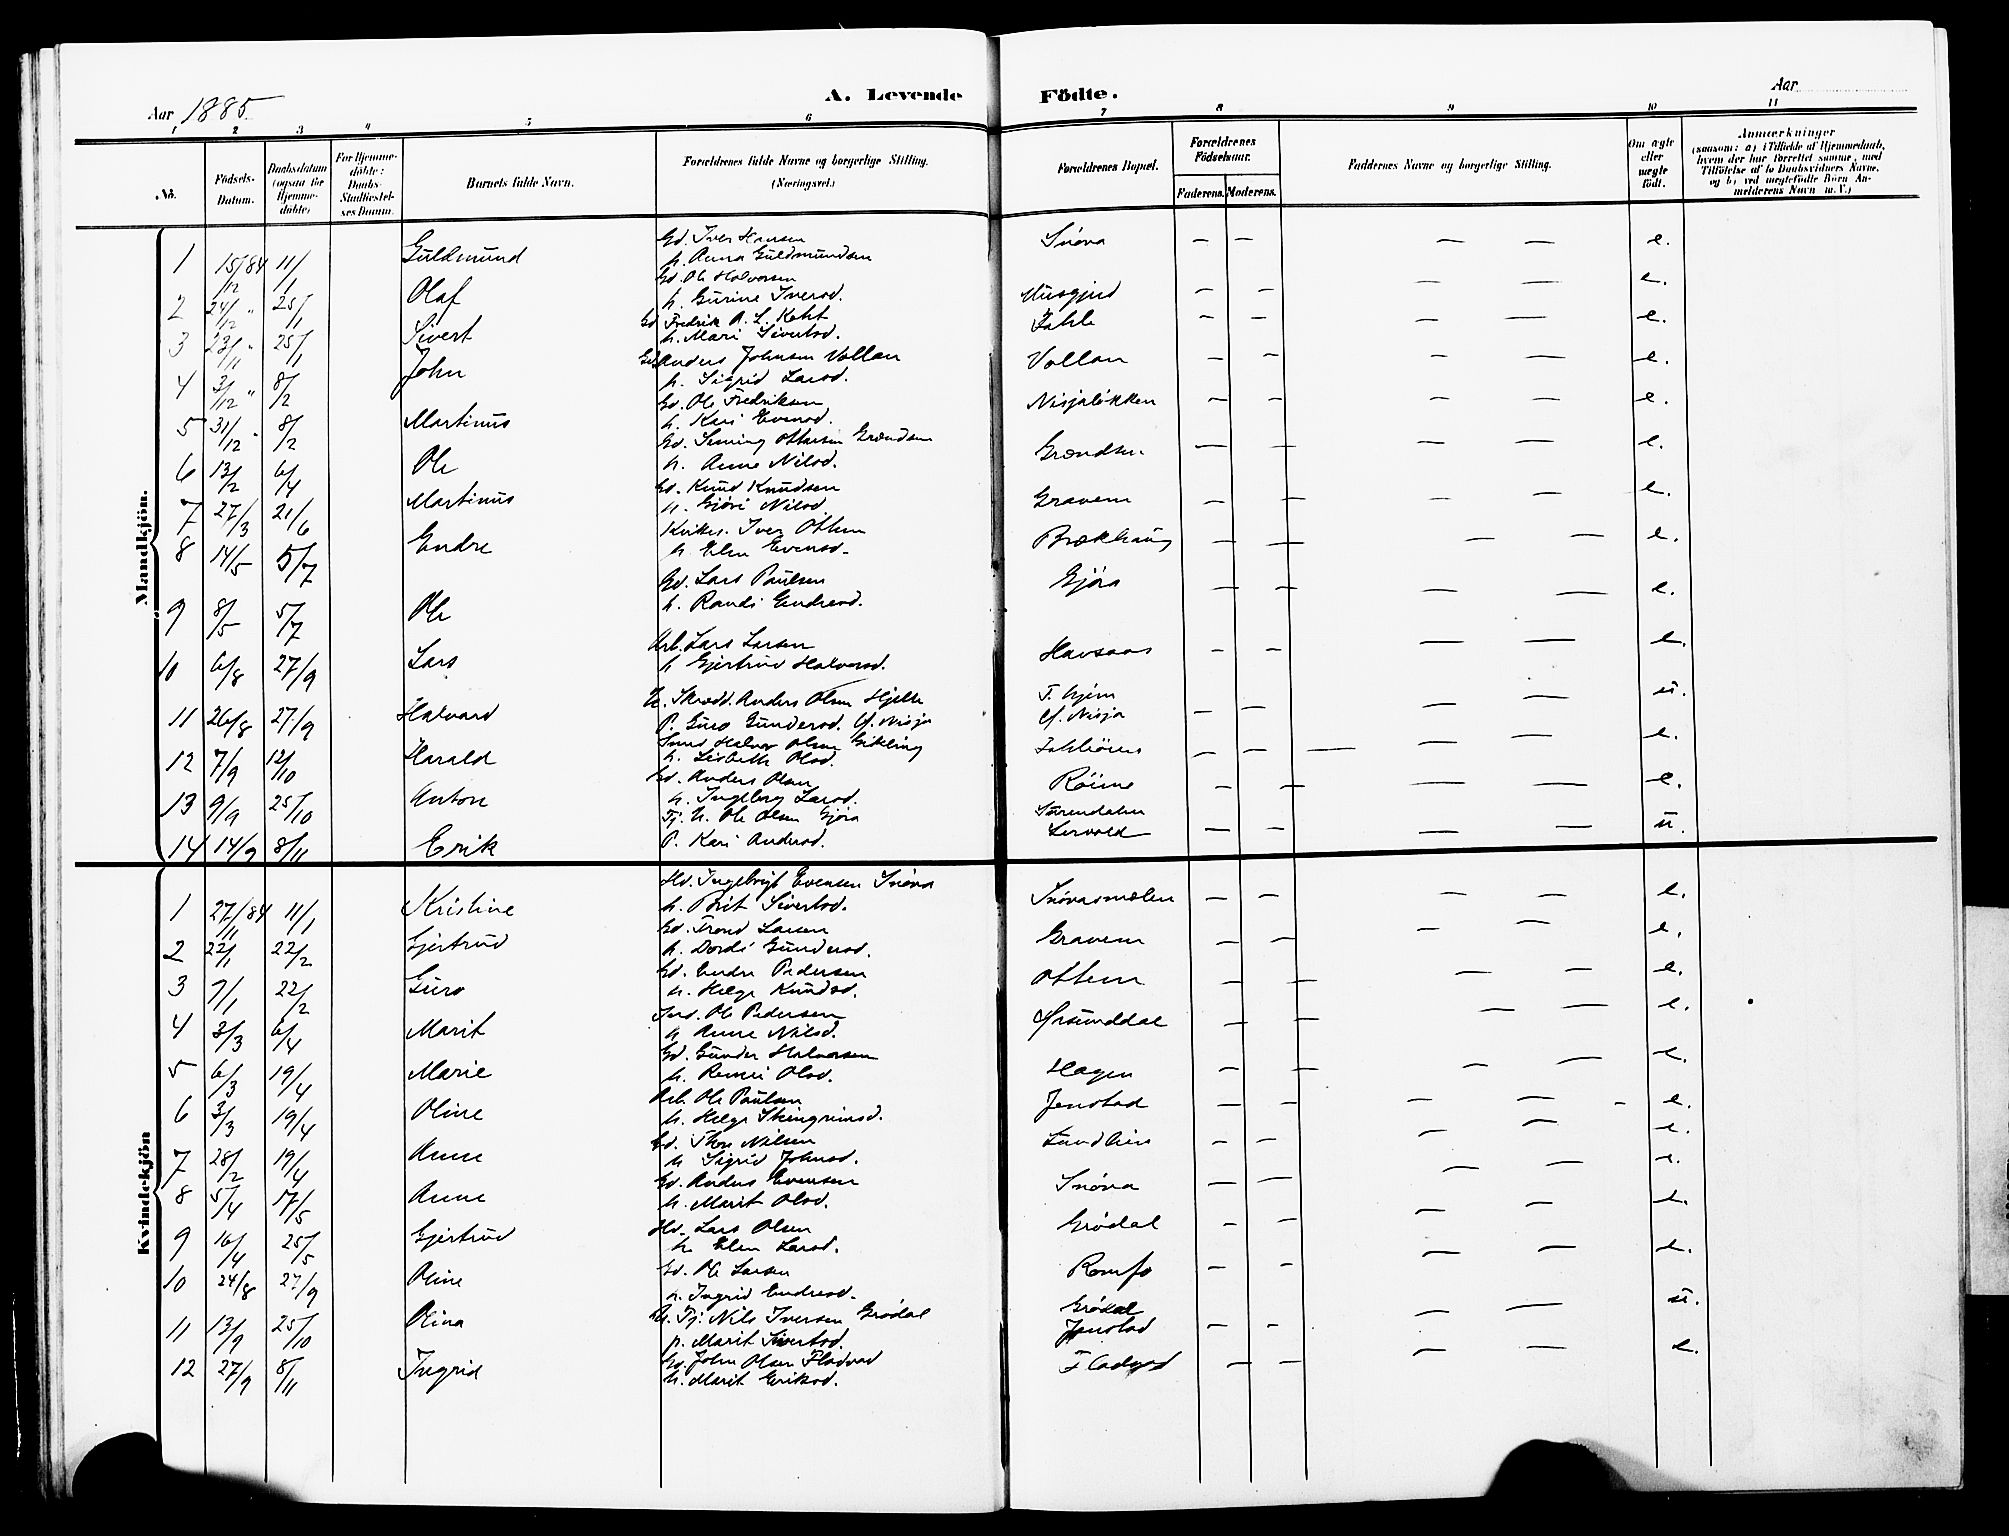 Aar 1885
A. Levende Födte.
Aar
1 2 3 4 5 6 7 8 9 10 11
No.
Födsels-Datum.
Daabsdatum (ogsaa for Hjemmedöbte)
For Hjemmedöbte: Daabs-Stadfæstelses Datum.
Barnets fulde Navn.
Forældrenes fulde Navne og borgerlige Stilling. (Næringsvei.)
Forældrenes Bopæl.
Forældrenes Födselsaar.
Faderens. Moderens.
Faddernes Navne og borgerlige Stilling.
Om ægte eller uægte födt.
Anmærkninger
(saasom: a) i Tilfælde af Hjemmedaab, hvem der har forrettet samme, med Tilföielse af to Daabsvidners Navne, og b) ved uægtefödte Börn Anmelderens Navn m. V.)
Mandkjön.
1 15/12 84 11/1 Guldmund Gd. Iver Hansen Snøva — — — — e.
h. Anna Guldmundsen
2 24/12 " 25/1 Olaf Gd. Ole Halvorsen Musgjerd — — — — e.
h. Gurine Iversd.
3 23/11 " 25/1 Sivert Gd. Fredrik A. L. Fahle — — — — e.
h. Mari Sivertsd.
4 3/12 " 8/2 John Gd. Anders Johnsen Vollan Vollan — — — — e.
h. Sigrid Larsd.
5 31/12 " 8/2 Martinus Gd. Ole Fredriksen Nisjaløkken — — — — e.
h. Kari Evensd.
6 13/2 6/4 Ole Gd. Ottarsen Grændsen Grændsen — — — — e.
h. Anne Nilsd.
7 27/3 21/6 Martinus Gd. Knud Knudsen Gravem — — — — e.
h. Gjøri Nilsd.
8 14/5 5/7 Endre Kirkes. Iver Ottem Brækhaug — — — — e.
h. Elen Evensd.
9 8/5 5/7 Ole Gd. Lars Paulsen Gjøra — — — — e.
h. Randi Endresd.
10 6/8 27/9 Lars Arb. Lars Larsen Havsaas — — — — e.
h Gjertrud Halvorsd.
11 26/8 27/9 Halvard U. Skrædd. Anders Olsen Hjelle F. hjem — — — — u.
P. Guro Gundersd. M. Nisja M. Nisja
12 7/9 12/10 Harald Smed Halvor Olsen Gikling — — — — — e.
h. Lisbeth Olsd.
13 9/9 25/10 Anton Gd. Anders Olsen Røime — — — — e.
h. Ingeborg Larsd.
14 14/9 8/11 Erik Tj. U. Ole Olsen Gjøra Surendalen — — — — u.
P. Kari Andersd. Lervold
Kvindekjön
1 27/11 84 11/1 Kristine Hd. Ingebrigt Evensen Snøva Snøvasmælen — — — — e.
h. Brit Sivertsd.
2 22/1 22/2 Gjertrud Gd. Trond Larsen Gravem — — — — e.
h. Dordi Gundersd.
3 7/1 22/2 Guro Gd. Endre Pedersen Ottem — — — — e.
h. Helge Knudsd.
4 3/3 6/4 Marit Ole Pedersen Grsunddal — — — — e.
h Anne Nilsd.
5 6/3 19/4 Marie Gd. Gunder Halvorsen Hagen — — — — e.
h. Olsd.
6 3/3 19/4 Oline Arb. Ole Paulsen Jenstad — — — — - e.
h. Helge Steingrimsd.
7 28/2 19/4 Anne Gd. Thore Nilsen Sundlien — — — — e.
h Sigrid Johnsd.
8 5/4 17/5 Anne Gd. Anders Evensen Snøva — — — — e.
h. Marit Olsd.
9 16/4 25/5 Gjertrud Hd. Lars Olsen Grødal — — — — e.
h. Elen Larsd.
10 24/8 27/9 Oline Gd. Ole Larsen Romfo — — — — e.
h. Ingrid Endresd.
11 13/9 25/10 Olina U. Tj. Nils Iversen Grødal Grødal — — — — u.
p. Marit Sivertsd. Jenstad
12 27/9 8/11 Ingrid Gd. John Olsen Fladvad Fladvad — — — — e.
h. Marit Eriksd.